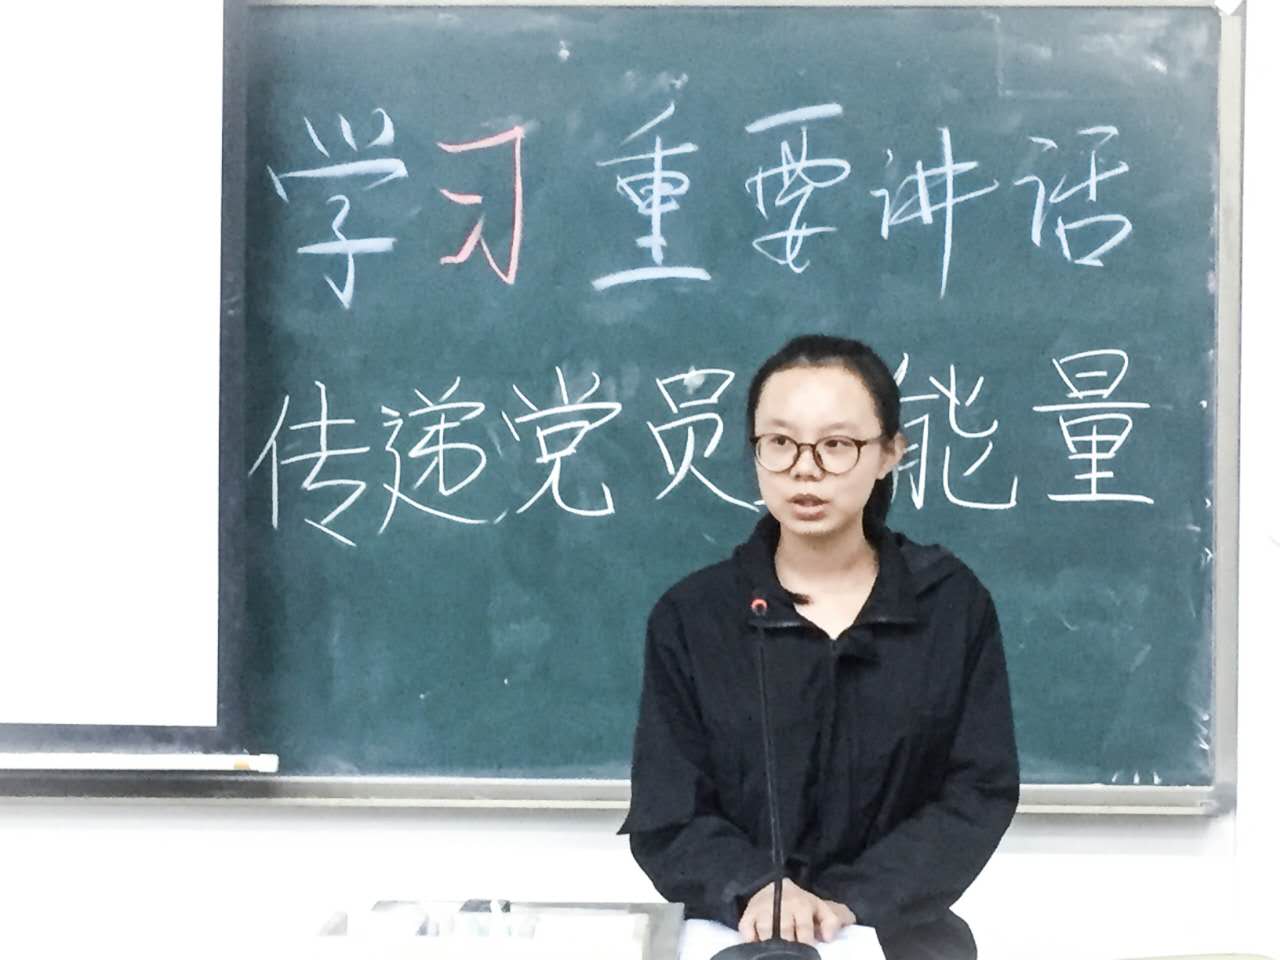 学习重要讲话
传递党员 能量